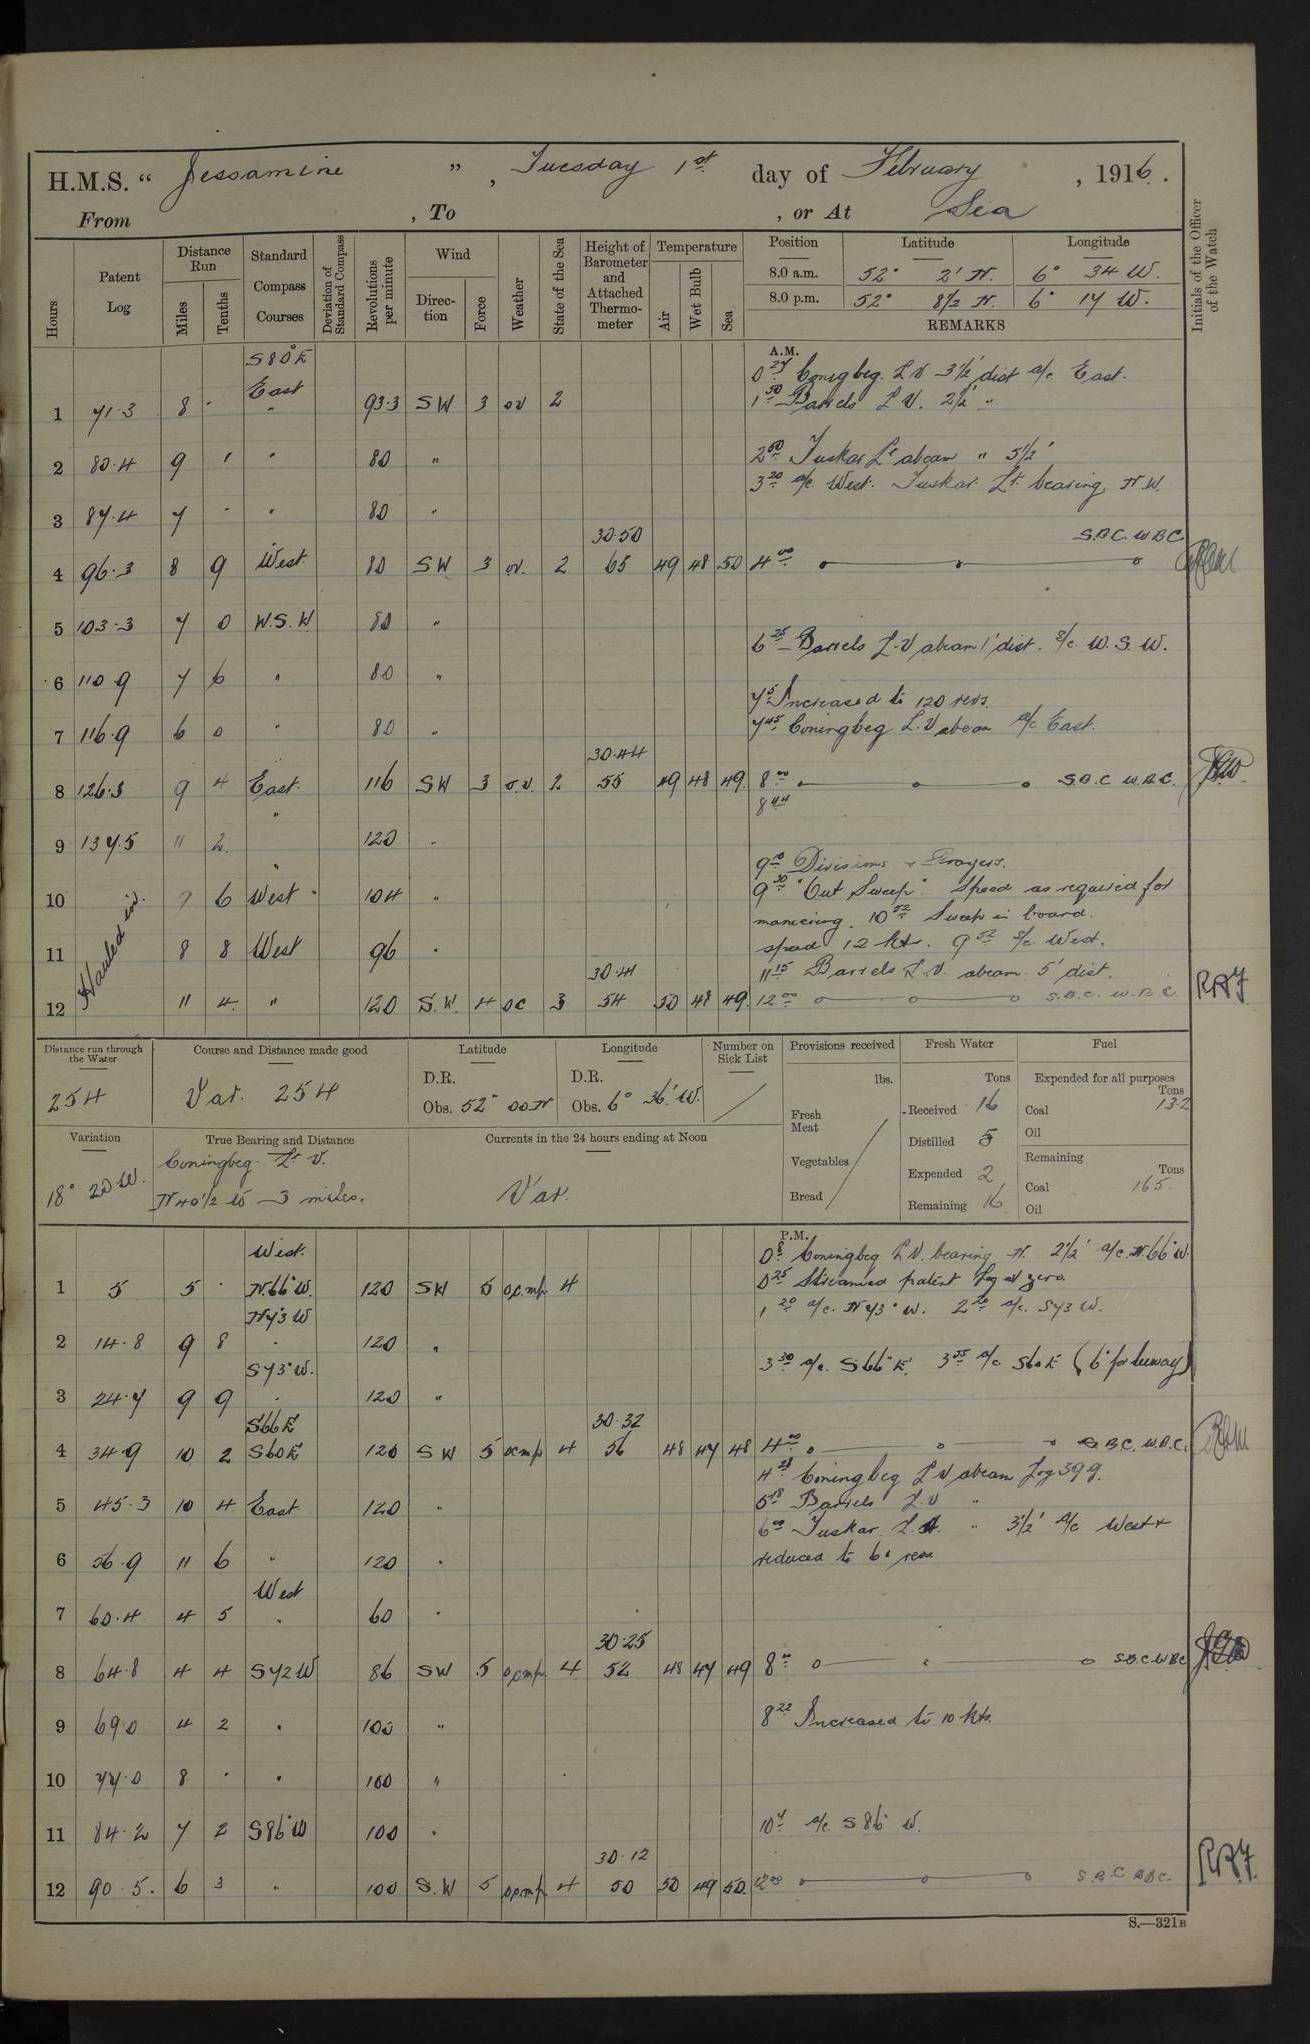 H.M.S. " Jessamine ", Tuesday 1st day of February, 1916.
From , To , or At Sea
Hours
Patent Log
Distance Run
Miles
Tenths
Standard Compass Courses
Deviation of Standard Compass
Revolutions per minute
Wind
Direction
Force
Weather
State of the Sea
Height of Barometer and Attached Thermometer
Temperature
Air
Wet Bulb
Sea
Position Latitude Longitude
8.0 a.m. 52° 2' N. 6° 34 W.
8.0 p.m. 52° 8½ N. 6° 17 W.
REMARKS
Initials of the Officer of the Watch
A.M.
S80E
East
0 27 Coningbeg. L V 3½' dist a/c East.
1 71.3 8 · " 93.3 SW 3 ov 2
1 50 Barrels L V. 2½' "
2 80.4 9 1 " 80 "
2 50 Tuskar Lt abeam " 5½'
3 20 a/c West. Tuskar Lt. bearing N.W.
3 87.4 7 · " 80 "
30.50 S.B.C. W.B.C.
4 96.3 8 9 West 80 SW 3 ov. 2 65 49 48 50 4 00
5 103.3 7 0 W.S.W. 80 "
6 25 Barrels L.V abeam 1' dist. a/c W.S.W.
6 110.9 7 6 " 80 "
7 5 Increased to 120 revs.
7 116.9 6 0 " 80 "
7 45 Coningbeg L.V abeam a/c East.
30.44
8 126.3 9 4 East. 116 SW 3 o.v. 2 55 49 48 49 8 00 S.B.C W.B.C.
8 44
9 137.5 11 2 " 120 "
9 10 Divisions & Prayers.
10 9 6 West 104 "
9 30 "Out Sweep". Speed as required for
manvering. 10 52 Sweep in board.
11 Hauled in. 8 8 West 96 "
speed 12 kts. 9 52 a/c West.
30.41
11 15 Barrels L.V. abeam 5' dist.
12 11 4 " 120 S.W. 4 oc 3 54 50 48 49 12 00 S.B.C. W.B.C. RAJ
Distance run through the Water
254
Course and Distance made good
Var. 254
Latitude
D.R.
Obs. 52° 00 N
Longitude
D.R.
Obs. 6° 36' W.
Number on Sick List
Provisions received
lbs.
Fresh Meat
Vegetables
Bread
Fresh Water
Tons
Received 16
Distilled 5
Expended 2
Remaining 16
Fuel
Expended for all purposes
Tons
Coal 13.2
Oil
Remaining
Tons
Coal 165
Oil
Variation
18° 20 W.
True Bearing and Distance
Coningbeg Lt V.
N 40½ E - 3 miles.
Currents in the 24 hours ending at Noon
Var.
P.M.
West.
0 8 Coningbeg L V. bearing N. 2½' a/c N.66°W.
1 5 5 · N.66°W. 120 SW 5 ocmp 4
0 25 Streamed patent Log at zero.
N73W
1 20 a/c. N73°W. 2 20 a/c. S73W.
2 14.8 9 8 " 120 "
S73°W.
3 30 a/c. S66°E. 3 55 a/c S60E (6° for leeway)
3 24.7 9 9 " 120 "
S66E 30.32
4 34.9 10 2 S60E 120 SW 5 ocmp 4 56 48 47 48 4 00 S.B.C. W.B.C.
4 28 Coningbeg L V abeam Log 39.9.
5 45.3 10 4 East 120 "
5 18 Barrels L.V "
6 00 Tuskar. L.H. " 3½' a/c West &
6 56.9 11 6 " 120 "
reduced to 60 revs
West
7 60.4 4 5 " 60 "
30.25
8 64.8 4 4 S72W 86 SW 5 ocmp. 4 52 48 47 49 8 00 S.B.C W.B.C
9 69.0 4 2 " 100 "
8 22 Increased to 10 kts.
10 77.0 8 · " 100 "
11 84.2 7 2 S86°W 100 "
10 7 a/c S 86° W.
30.12
12 90.5. 6 3 " 100 S.W 5 ocmp 4 50 50 49 50. 12 00 S.B.C W.B.C. RAJ.
S.—321B